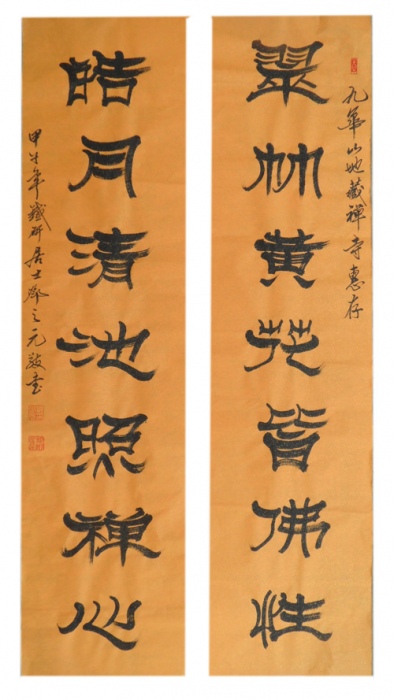 九華山地藏禪寺惠存
翠竹黃花皆佛性
皓月清池照禪心
甲午年 居士鄧之元敬書